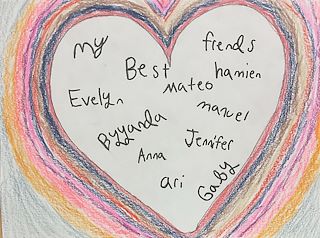 my frends
Best
hamien
mateo
Evelyn
manuel
Byyanda
Jennifer
Anna
ari
Gaby